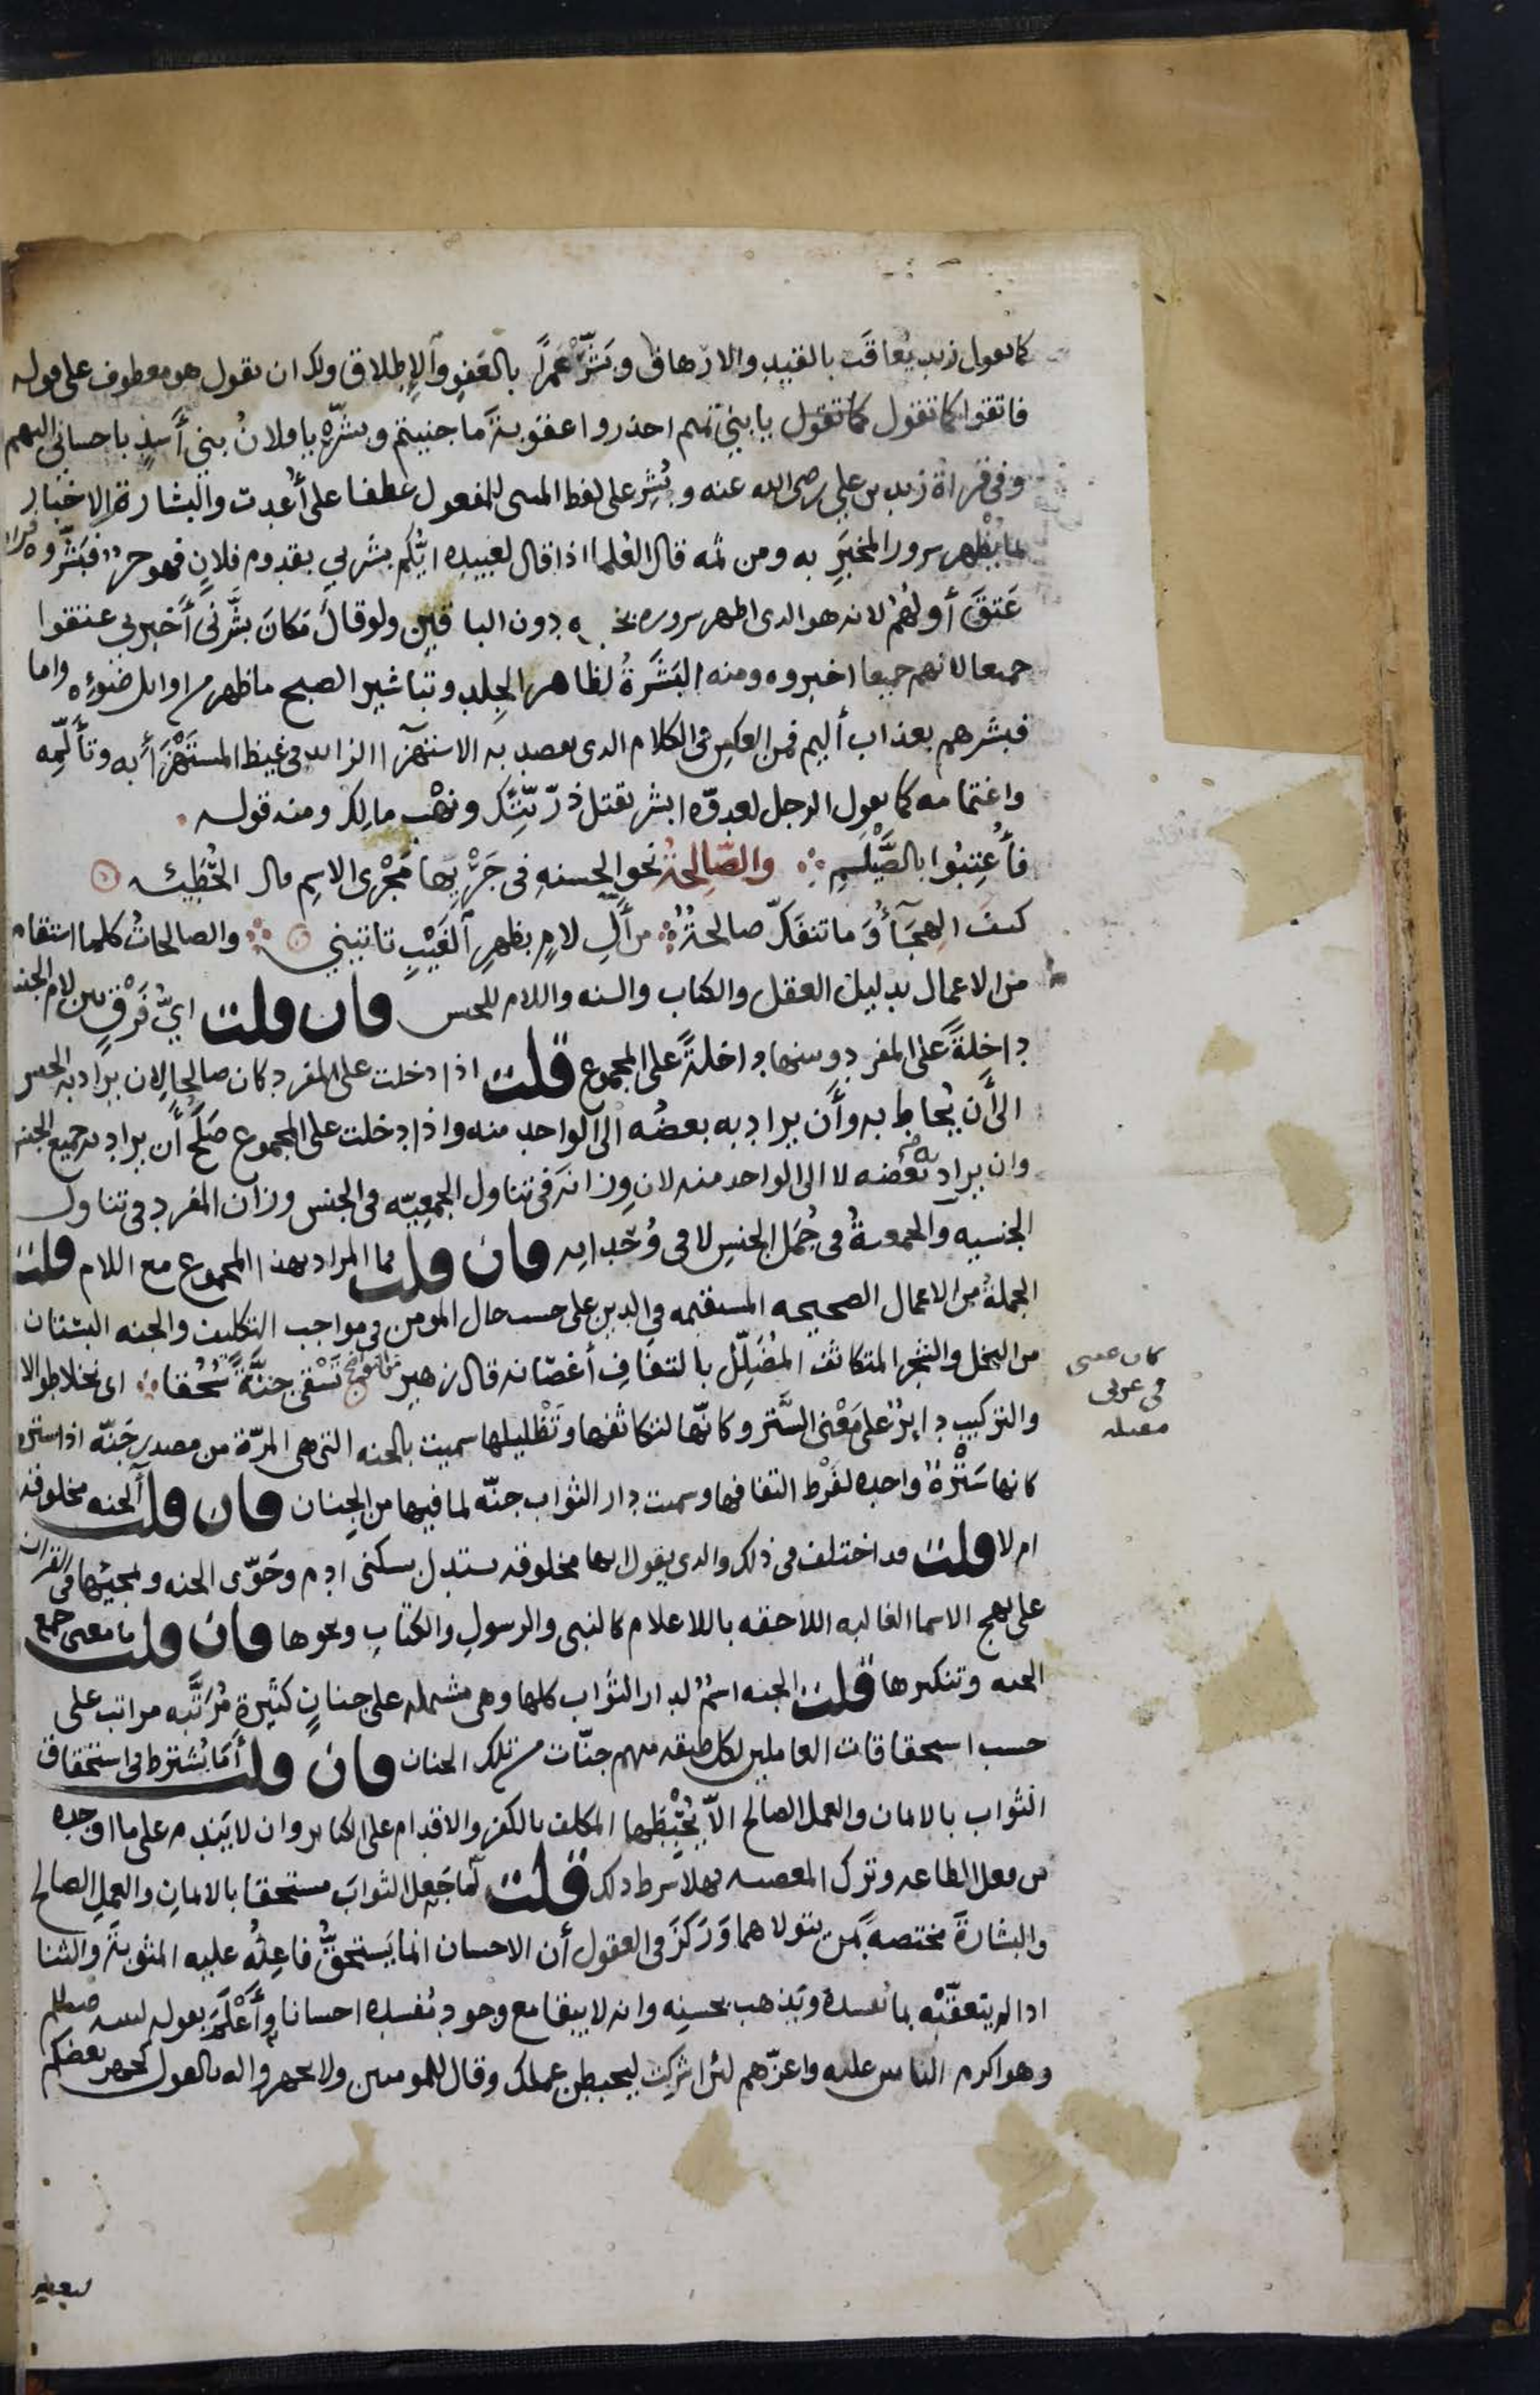 كما تقول زيد يعاقَب بالقيد والارهاق وبَشِّرْ عَمرًا بالعَفوِ والإطلاق ولك ان تقول هو معطوف على قوله
فاتقوا كما تقول يا بني تميم احذروا عقوبةَ ما جنيتم وبشّر يا فلانُ بني أَسَدٍ باحساني اليهم
وفي قراة زيد بن علي رضي الله عنه وبُشِّر على لفظ المبني للمفعول عطفا على أُعدت والبشارة الاخبار
بما يُظهِر سرور المخبَرِ به ومن ثمه قال العُلما اذا قال لعبيده ايُّكم بشّرني بقدوم فلانٍ فهو حر فبشّروه فرادى
عَتَقَ أولُهُم لانه هو الذي اظهر سروره بخبره دون الباقين ولو قال مَكانَ بشَّرني أَخبرني عتقوا
جميعا لانهم جميعا اخبروه ومنه البَشَرةُ لظاهر الجِلد وتباشير الصبح ما ظهر من اوايل ضَوْءِه واما
فبشرهم بعذاب أليم فمن العكس في الكلام الذي يقصد به الاستهزآ الزائد في غيظ المستَهْزَأ به وتألُّمِه
واغتمامه كما يقول الرجل لعدوّه ابشر بقتل ذرّيّتِك ونَهْب مالِك ومنه قوله
فأُعتِبُوا بالصَّيْلَمِ والصّالحةُ نحو الحسنه في جَرْيِها مَجْرى الاسمِ قال الحُطَيئه
كيفَ الهِجَآءُ وَمَا تنفَكّ صالحةٌ من آلِ لامٍ بظهرِ ٱلغَيْبِ تاتيني والصالحاتُ كلما استقام
من الاعمال بدليل العقل والكتاب والسنه واللام للجنس فان قلت ايُّ فَرْقٍ بين لام الجنس
داخِلةً على المفرد وبينها داخلةً على المجموع قلت اذا دخلت على المفرد كان صالحا لان يراد به الجنس
الى أَن يُحاط به وأَن يراد به بعضُه الى الواحد منه واذا دخلت على المجموع صَلَحَ أَن يراد به جميع الجنس
وان يراد بعضه لا الى الواحد منه لان وِزانَه في تناول الجمعيّه في الجنس وِزان المفرد في تناول
الجنسيه والجمعيةُ في جُمَل الجنسِ لا في وُحْدانِه فان قلت فما المراد بهذا المجموع مع اللام قلت
الجملةُ من الاعمال الصحيحه المستقيمه في الدين على حسب حال المومن في مواجب التكليف والجنه البستان
من النخل والشجر المتكاثف المُظَلِّل بالتفافِ أغصانه قال زهير من النواضح تَسْقي جنّةً سُحُقا اي نخلا طوالا
والتركيب دايرٌ على مَعْنى السَّتر وكانّها لتكاثفها وتَظْليلها سميت بالجنه التي هي المرّة من مصدر جَنّه اذا ستره
كانها سَتْرةٌ واحده لفَرْط التفافها وسميت دار الثواب جنّه لما فيها من الجِنان فان قلت الجنه مخلوقه
ام لا قلت قد اختلف في ذلك والذي يقول انها مخلوقه يستدل بسكنى ادم وحَوّى الجنه وبمجيئها في القران
على نهج الاسما الغالبه اللاحقه بالاعلام كالنبي والرسولِ والكتابِ ونحوها فان قلت ما معنى جمع
الجنه وتنكيرها قلت الجنه اسمٌ لدار الثواب كلها وهي مشتمله على جنانٍ كثيرةٍ مُرَتَّبه مراتب على
حسب استحقاقات العاملين لكل طبقه منهم جنّات من تلك الجنان فان قلت أَمَا يُشترط في استحقاق
الثواب بالايمان والعمل الصالح الاّ يُحْبِطَها المكلف بالكفر والاقدام على الكباير وان لا يَندم على ما اوجده
من فعل الطاعه وترك المعصيه فهلا شرط ذلك قلت لمّا جَعل الثوابَ مستحقا بالايمانِ والعملِ الصالح
والبشارةَ مختصةً بمن يتولاهما وَرَكَزَ في العقول أن الاحسان انما يَستحقُّ فاعِلُهُ عليه المثوبةَ والثنا
اذا لم يتعقّبْه بما يُفسده ويَذهب بحسنه وانه لا يبقا مع وجود مُفسده احسانا وأَعْلَمَ بقوله لنبيه صلعم
وهو اكرم الناس عليه واعزّهم لئن اشركت ليحبطن عملك وقال للمومنين ولا تجهروا له بالقول كجهر بعضكم
لبعض
كان عيني
في غربي
مقتله